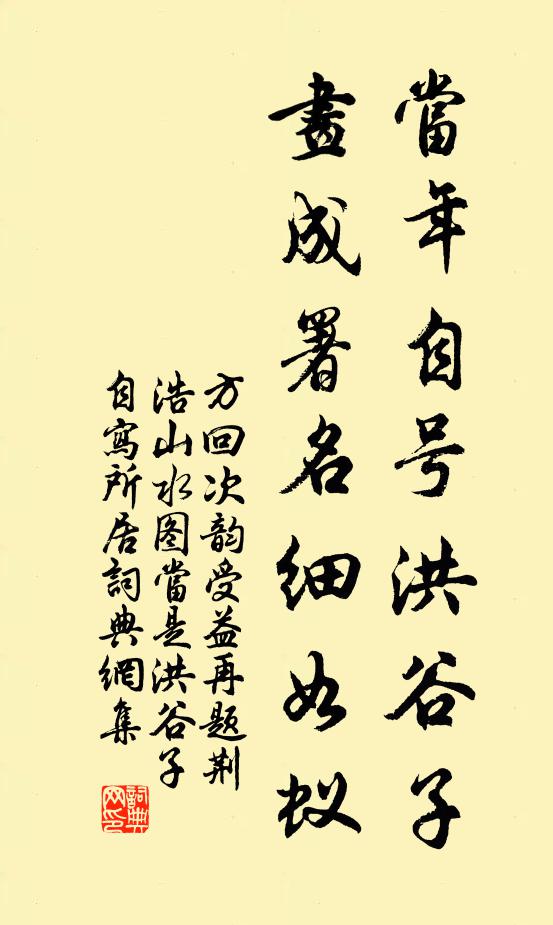 當年自号洪谷子
畫成署名细如蚁
方回次韵受益再题荆
浩山水图當是洪谷子
自寫所居詞典網集
詞典网印